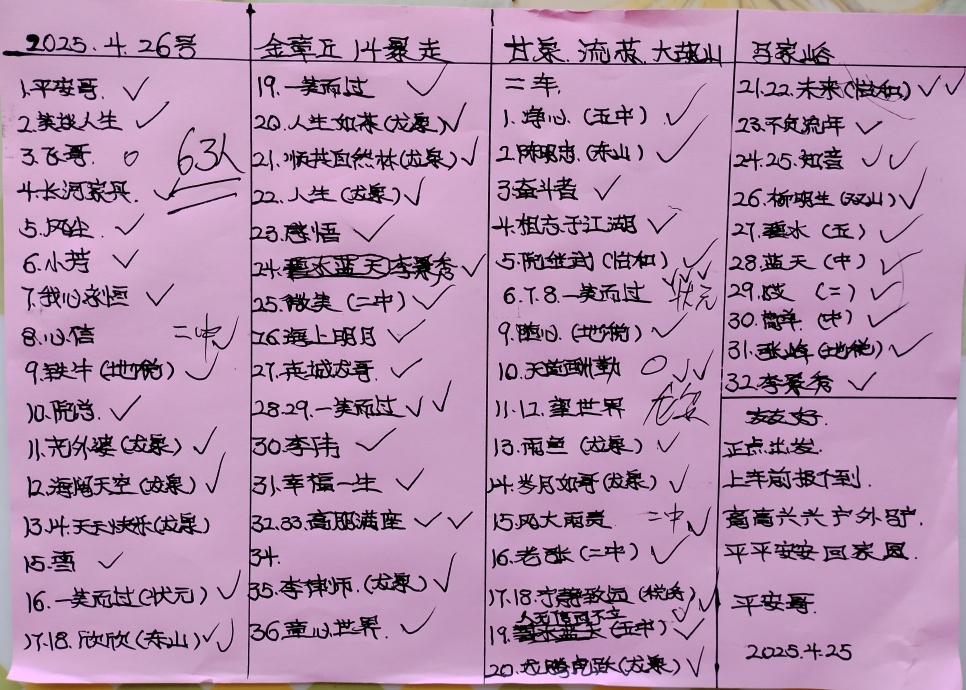 2025.4.26号
1.平安哥 ✓
2.笑谈人生 ✓
3.飞哥. O
63人
4.长河 ✓
5.风尘 ✓
6.小芳 ✓
7.我心永恒 ✓
8.心信 二中 ✓
9.铁牛(地税) ✓
10.院总. ✓
11.老外婆(龙泉) ✓
12.海阔天空(龙泉) ✓
13.14.天天快乐(龙泉)
15.雪 ✓
16.一笑而过(状元) ✓
17.18.欣欣(东山) ✓✓
金章丘14暴走
19.一笑而过 ✓
20.人生如茶(龙泉) ✓
21.顺其自然林(龙泉) ✓
22.人生(龙泉) ✓
23.感悟 ✓
24.碧水蓝天李景秀 ✓
25.微笑(二中) ✓
26.海上明月 ✓
27.英城龙哥. ✓
28.29.一笑而过 ✓✓
30.李伟 ✓
31.幸福一生 ✓
32.33.高朋满座 ✓✓
34.
35.李律师.(龙泉) ✓
36.童心世界. ✓
甘泉.流荔.大鼓山
二车.
1.净心.(五中) ✓
2.陈明忠.(东山) ✓
3.奋斗者 ✓
4.相忘于江湖 ✓
5.院继武(怡和) ✓
6.7.8.一笑而过 状元 ✓✓
9.随心.(地税) ✓
10.天道酬勤 O ✓✓
11.12.玺世界 龙安
13.雨鱼(龙泉) ✓
14.岁月如哥(龙泉) ✓
15.风大雨贵 二中 ✓
16.老张(二中) ✓
17.18.宁静致远 ✓✓
19.碧水蓝天(五中) ✓
20.龙腾虎跃(龙泉) ✓
吕家峪
21.22.未来(怡和) ✓✓
23.不负流年 ✓
24.25.知音 ✓✓
26.柳明生(双山) ✓
27.碧水(五) ✓
28.蓝天(中) ✓
29. (二) ✓
30.简单.(中) ✓
31.张峰(地税) ✓
32.李景秀 ✓
友友好.
正点出发.
上车前报个到.
高高兴兴户外驴.
平平安安回家园.
平安哥.
2025.4.25